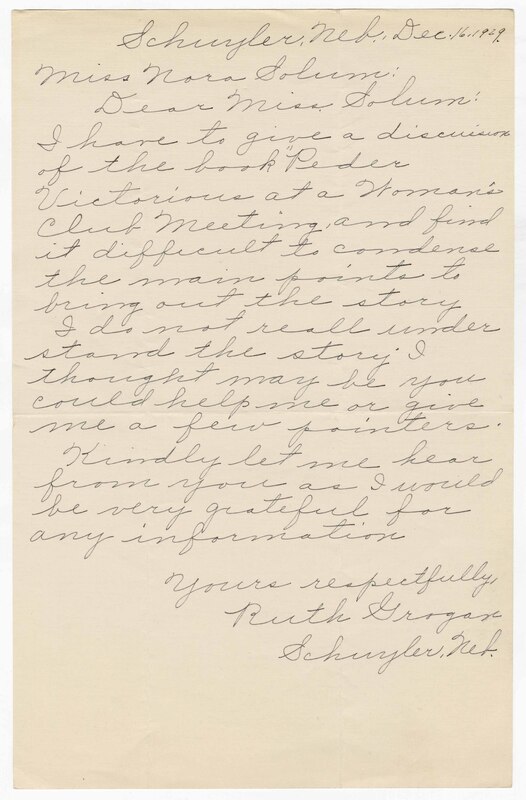 Schuyler, Neb., Dec. 16, 1929.
Miss Nora Solum:
Dear Miss. Solum:
I have to give a discuision
of the book "Peder
Victorious at a Woman's
Club Meeting, and find
it difficult to condense
the main points to
bring out the story
I do not reall under
stand the story I
thought may be you
could help me or give
me a few pointers.
Kindly let me hear
from you as I would
be very grateful for
any information
Yours respectfully,
Ruth Grogan
Schuyler, Neb.